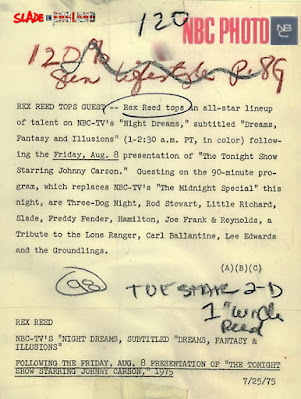 SLADE IN ENGLAND
120
NBC PHOTO
120%
Sun Lifestyle P-89
REX REED TOPS GUEST -- Rex Reed tops an all-star lineup
of talent on NBC-TV's "Night Dreams," subtitled "Dreams,
Fantasy and Illusions" (1-2:30 a.m. PT, in color) following
the Friday, Aug. 8 presentation of "The Tonight Show
Starring Johnny Carson." Guesting on the 90-minute pro-
gram, which replaces NBC-TV's "The Midnight Special" this
night, are Three-Dog Night, Rod Stewart, Little Richard,
Slade, Freddy Fender, Hamilton, Joe Frank & Reynolds, a
Tribute to the Lone Ranger, Carl Ballantine, Lee Edwards
and the Groundlings.
(A)(B)(C)
98
TUE STAR 2-D
1" whole
Reed
REX REED
NBC-TV'S "NIGHT DREAMS, SUBTITLED "DREAMS, FANTASY &
ILLUSIONS"
FOLLOWING THE FRIDAY, AUG. 8 PRESENTATION OF "THE TONIGHT
SHOW STARRING JOHNNY CARSON," 1975
7/25/75